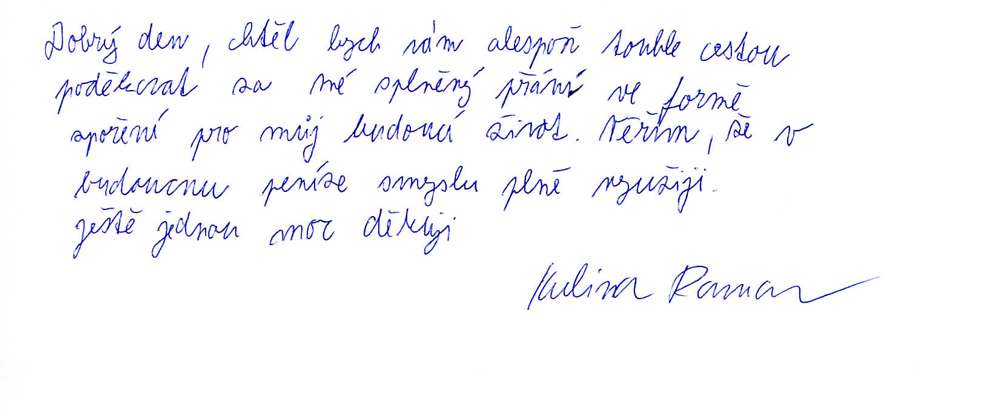 Dobrý den, chtěl bych vám alespoň touhle cestou
poděkovat za mé splněný přání ve formě
spoření pro můj budoucí život. Věřím, že v
budoucnu peníze smyslu plně využiji.
ještě jednou moc děkuji
Roman